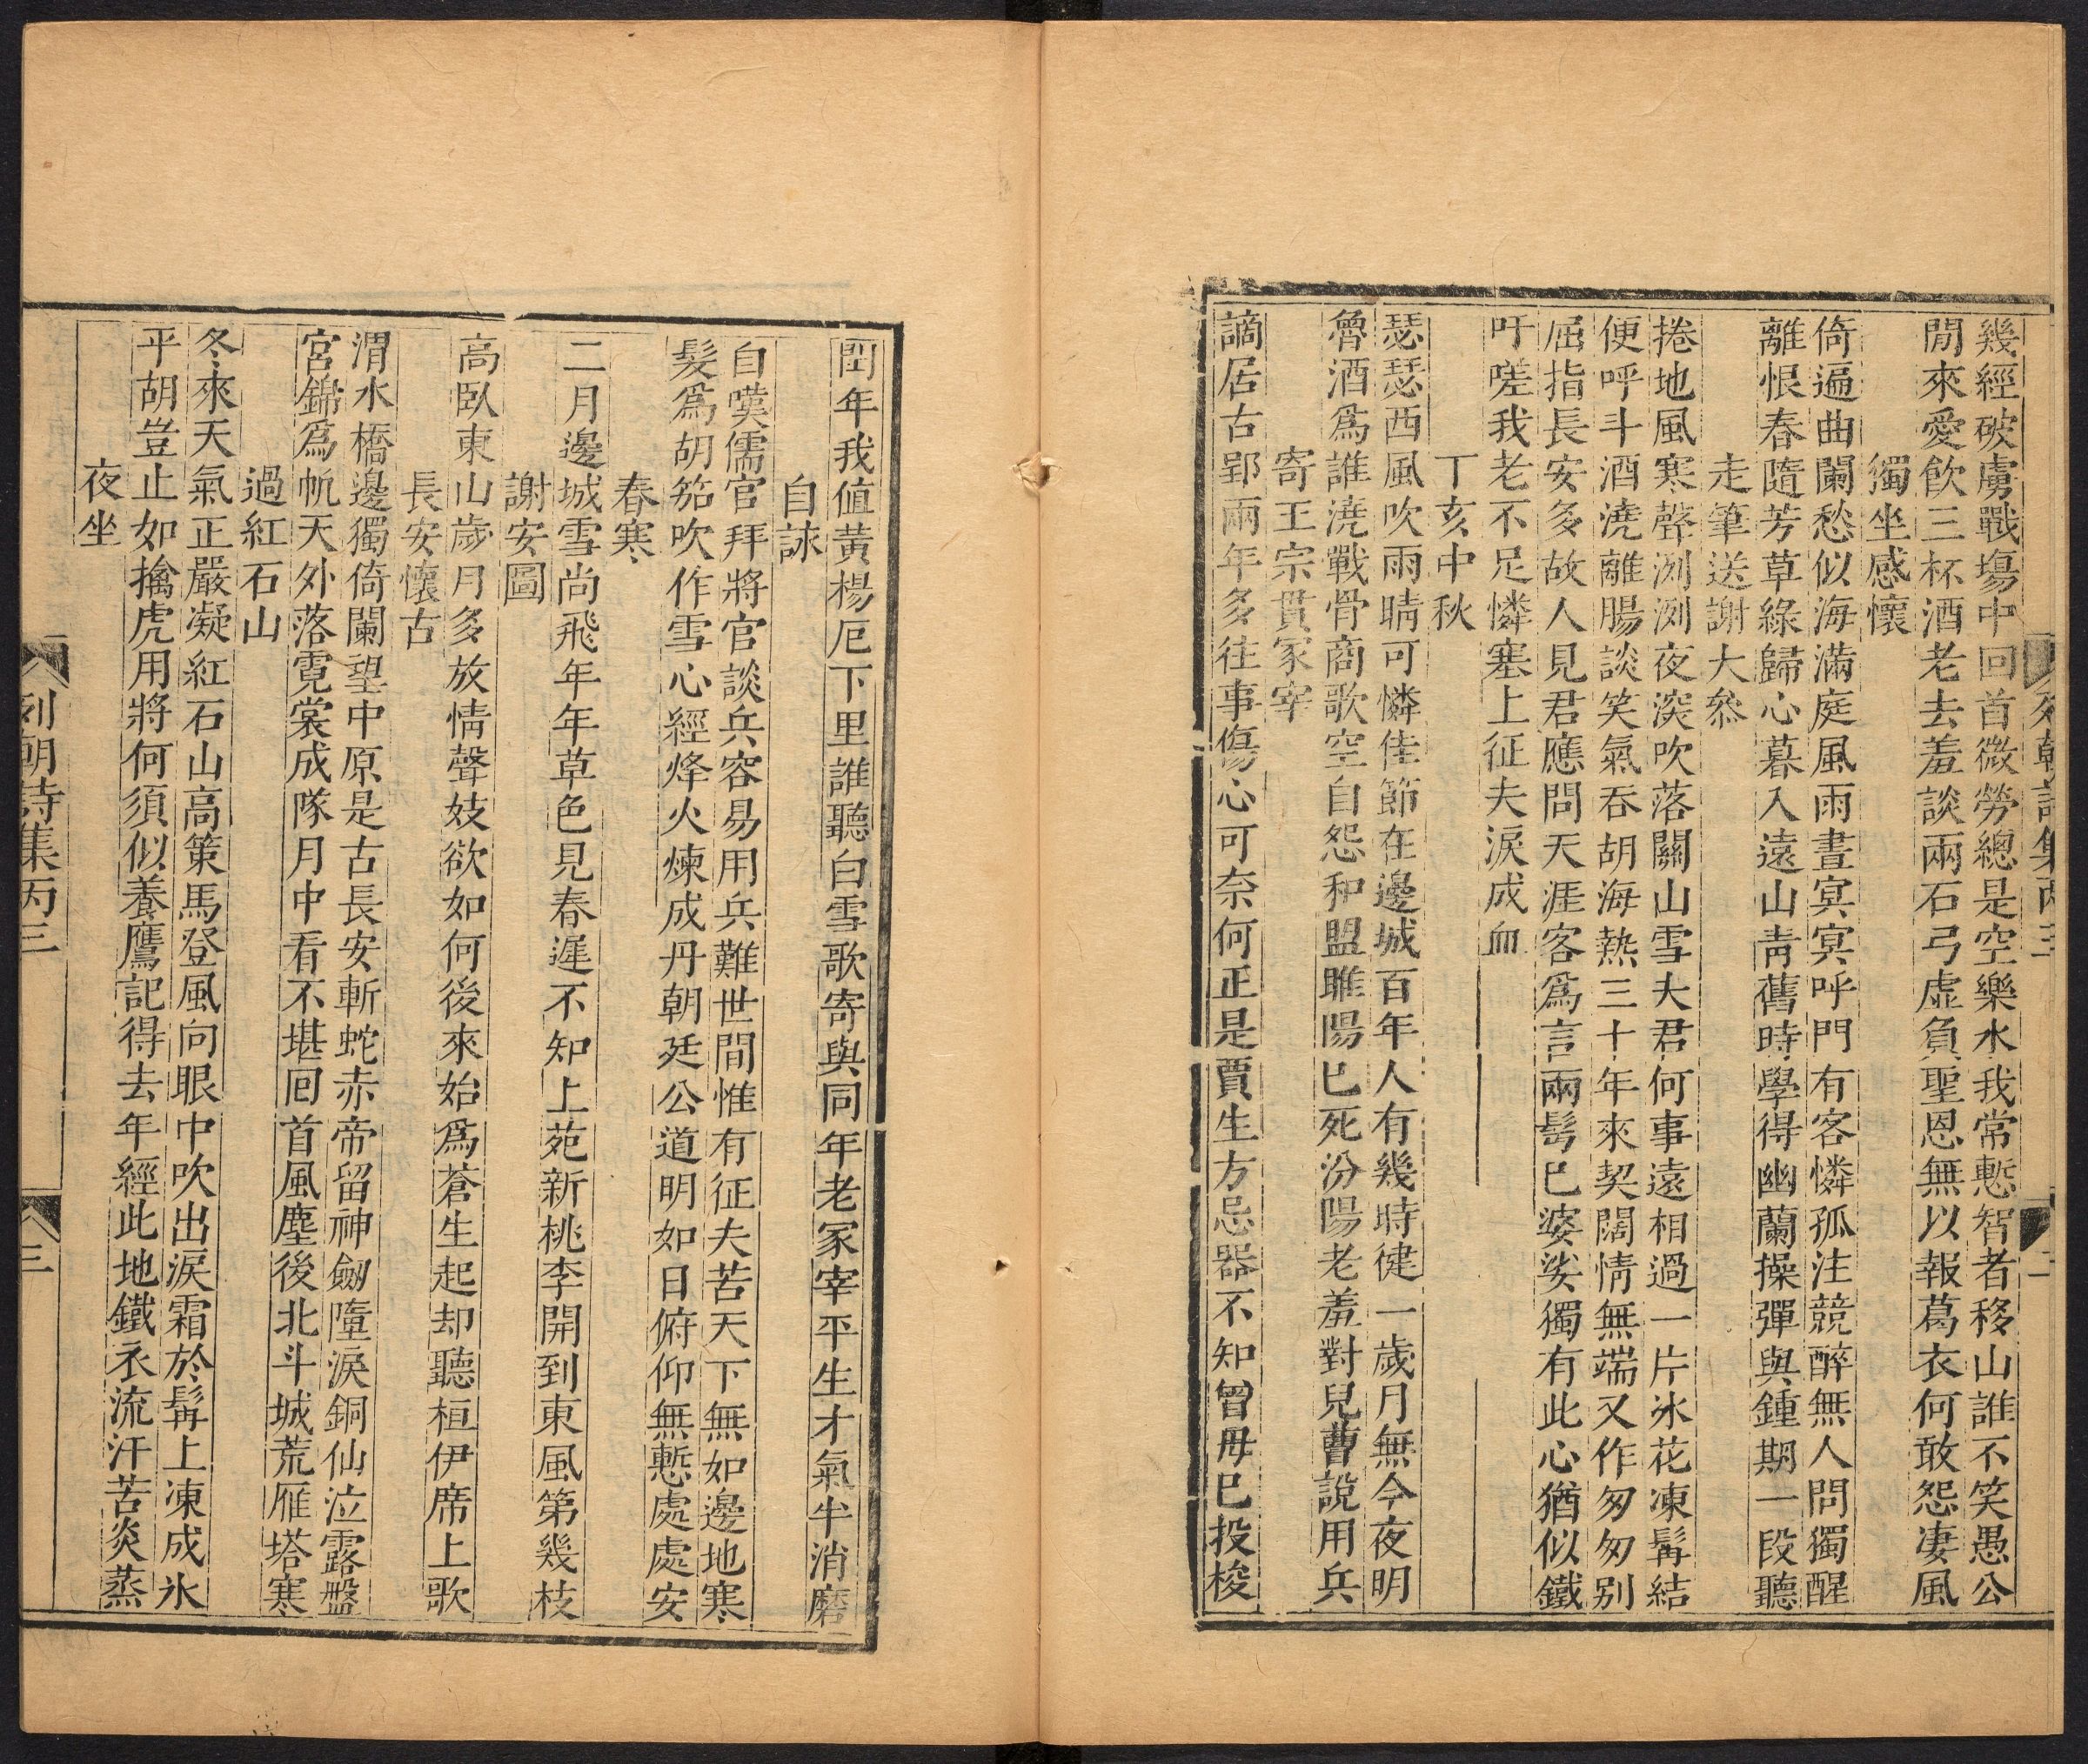 列朝詩集丙三
二
幾經破虜戰場中回首微勞總是空樂水我常慙智者移山誰不笑愚公
閒來愛飲三杯酒老去羞談兩石弓虛負聖恩無以報葛衣何敢怨凄風
獨坐感懷
倚遍曲闌愁似海滿庭風雨晝冥冥呼門有客憐孤注競醉無人問獨醒
離恨春隨芳草綠歸心暮入遠山靑舊時學得幽蘭操彈與鍾期一段聽
走筆送謝大叅
捲地風寒聲洌洌夜深吹落關山雪夫君何事遠相過一片氷花凍髯結
便呼斗酒澆離腸談笑氣吞胡海熱三十年來契闊情無端又作匆匆别
屈指長安多故人見君應問天涯客爲言兩髩巳婆娑獨有此心猶似鐵
吁嗟我老不足憐塞上征夫淚成血
丁亥中秋
瑟瑟西風吹雨晴可憐佳節在邊城百年人有幾時徤一歲月無今夜明
魯酒爲誰澆戰骨商歌空自怨和盟睢陽巳死汾陽老羞對兒曹說用兵
寄王宗貫冢宰
謫居古郢兩年多往事傷心可奈何正是賈生方忌器不知曾毋巳投梭
閏年我值黃楊厄下里誰聽白雪歌寄與同年老冢宰平生才氣半消磨
自詠
自嘆儒官拜將官談兵容易用兵難世間惟有征夫苦天下無如邊地寒
髮爲胡笳吹作雪心經烽火煉成丹朝廷公道明如日俯仰無慙處處安
春寒
二月邊城雪尚飛年年草色見春遲不知上苑新桃李開到東風第幾枝
謝安圖
高臥東山歲月多放情聲妓欲如何後來始爲蒼生起却聽桓伊席上歌
長安懷古
渭水橋邊獨倚闌望中原是古長安斬蛇赤帝留神劒墮淚銅仙泣露盤
宮錦爲帆天外落霓裳成隊月中看不堪囘首風塵後北斗城荒雁塔寒
過紅石山
冬來天氣正嚴凝紅石山高策馬登風向眼中吹出淚霜於髯上凍成氷
平胡豈止如擒虎用將何須似養鷹記得去年經此地鐵衣流汗苦炎蒸
夜坐
列朝詩集丙三
三